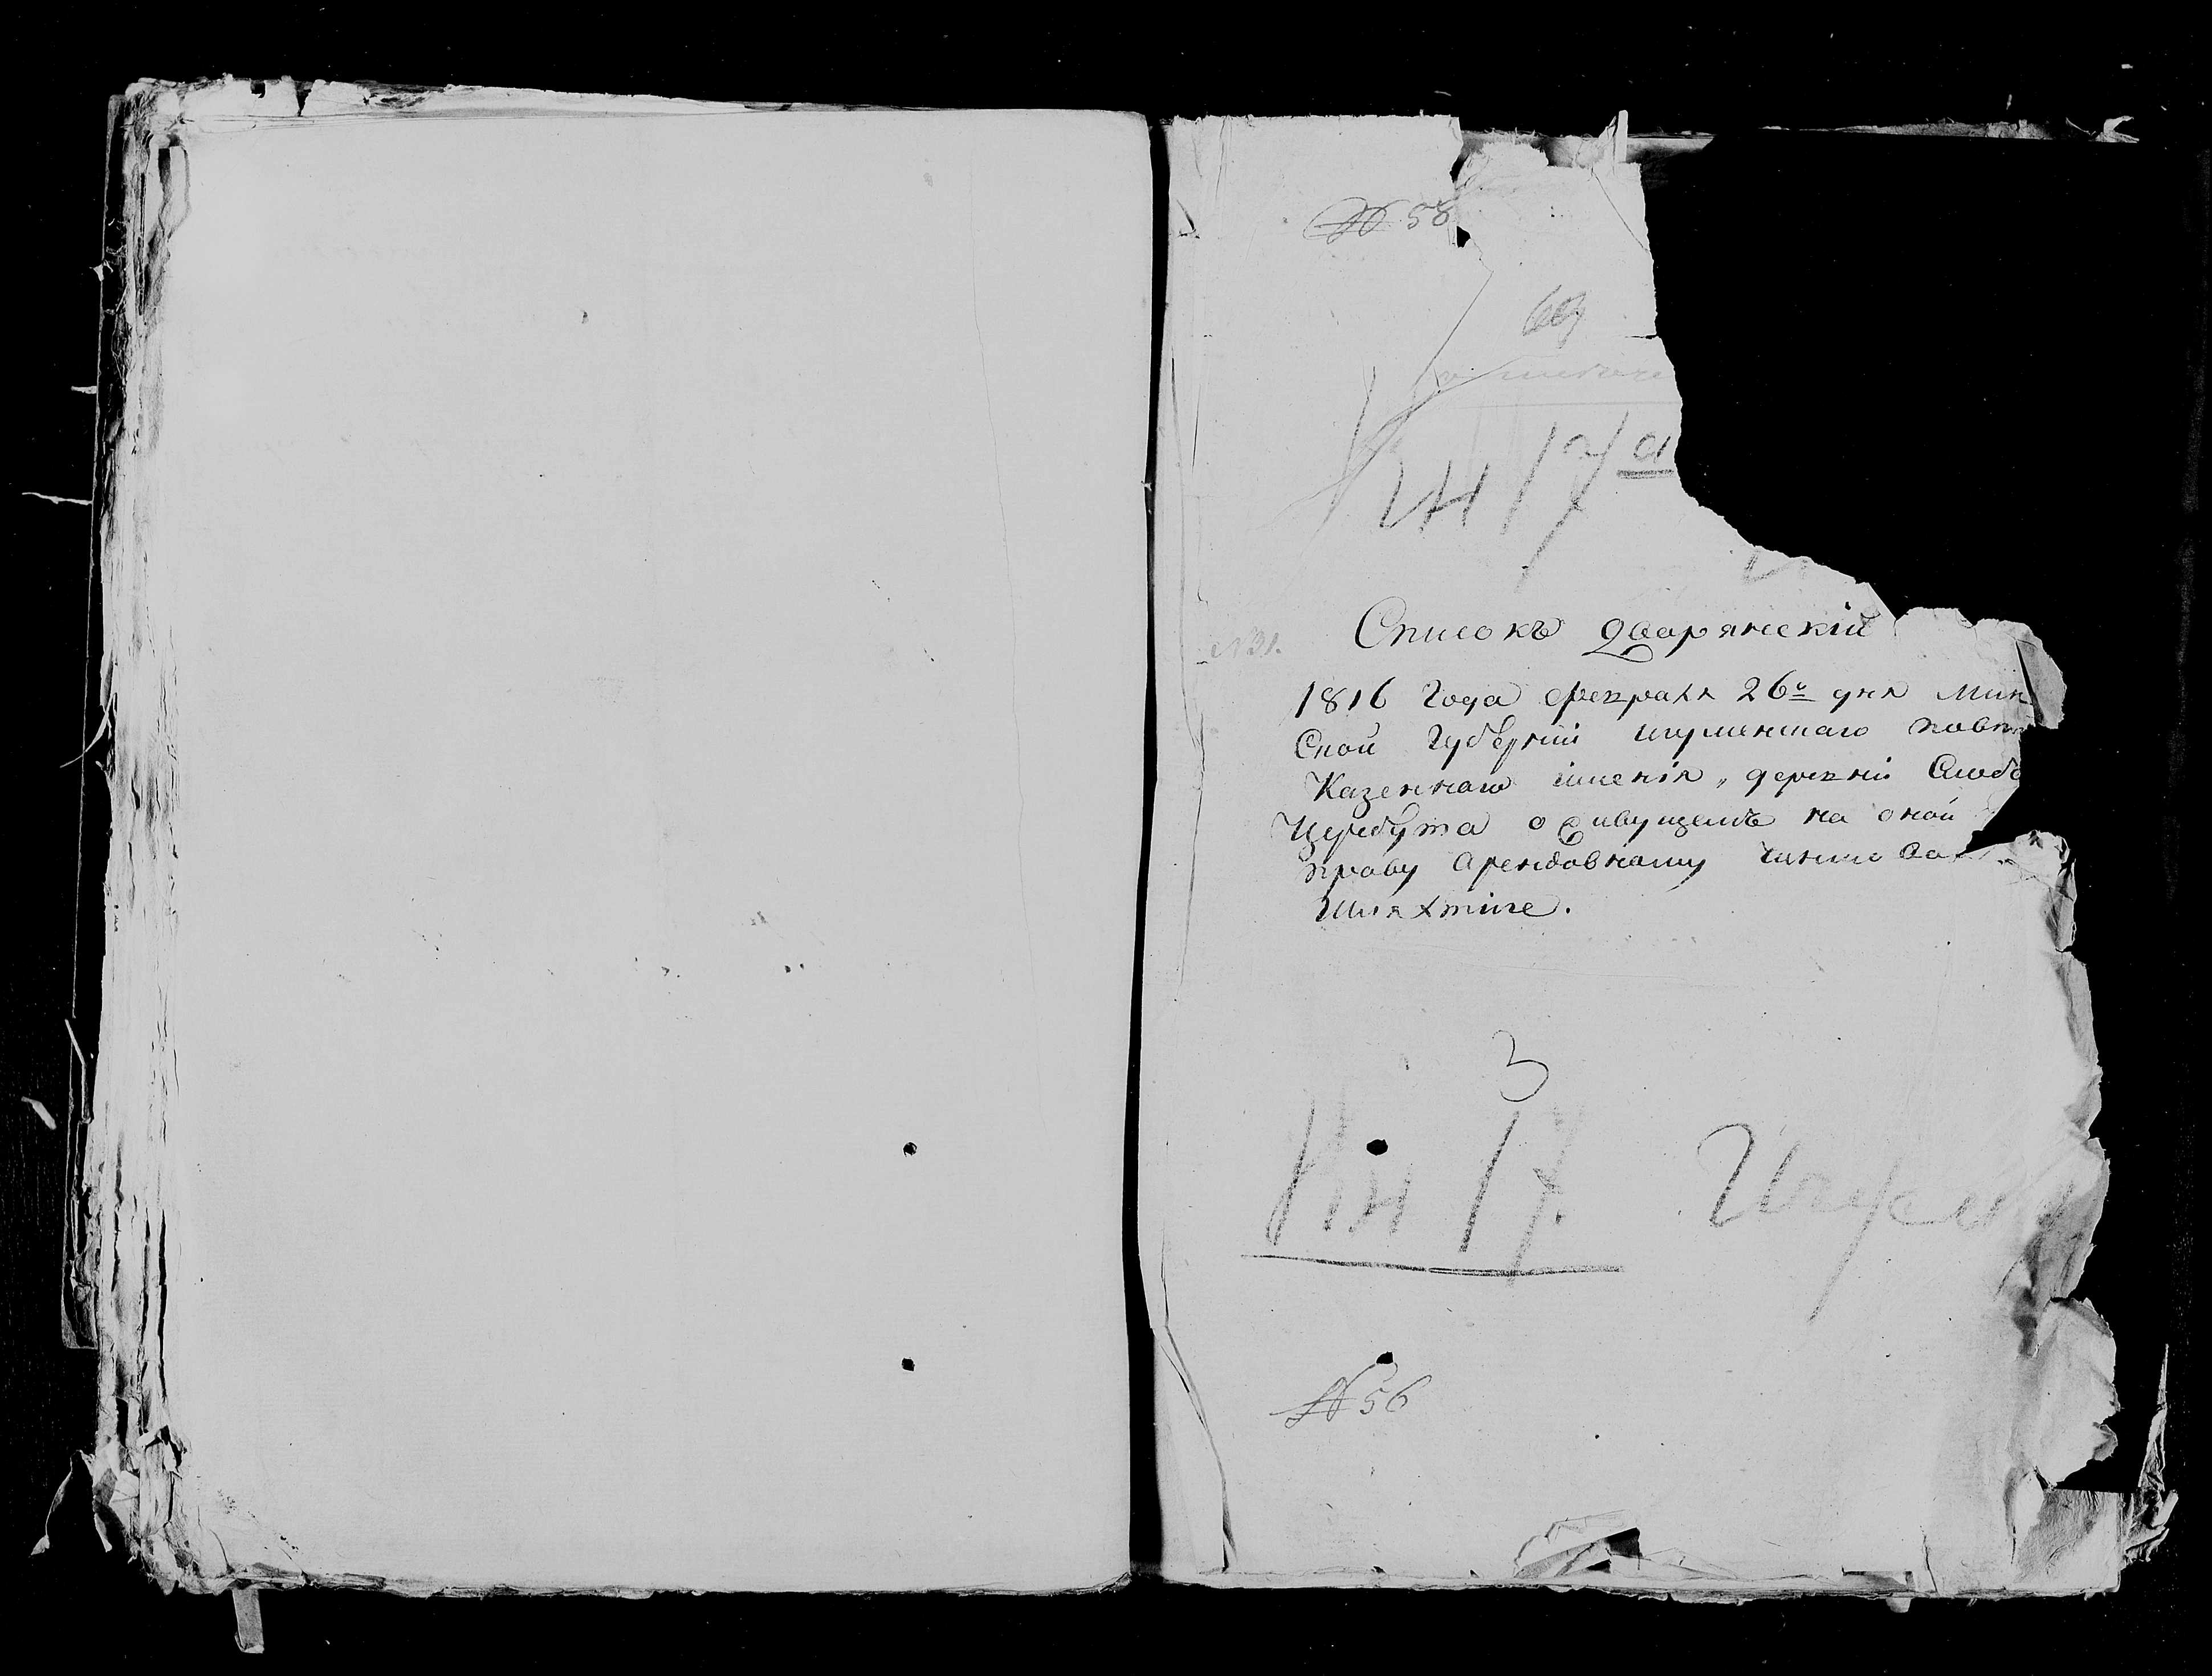 № 58
69
Кн 17 а
№ 31.
Списокъ дворянскій
1816 Года февраля 26го дня Мин
Ской Губерніи игуменшаго повѣт
Казеннаго имѣнія, деревни Слобо
Церебута о живущемъ на оной
праву Арендовному чиншово
Шляхтиче.
3
Кн 17.
Игумен
№ 56